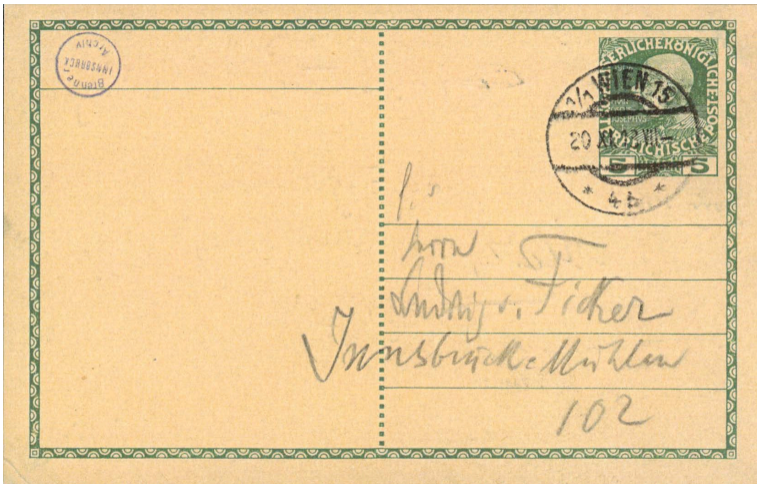 Brenner
INNSBRUCK
Archiv
KAISERLICHEKÖNIGLICHE
ÖSTERREICHISCHE POST
JOSEPHVS
5 5
1/1 WIEN 15
20 XI
* 4b *
Herrn
Ludwig v. Ficker
Innsbruck-Mühlau
102